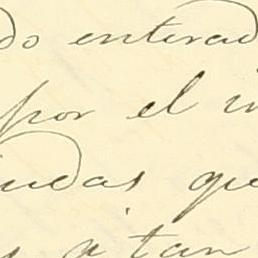 do enterad
por el i
udas que
a tan